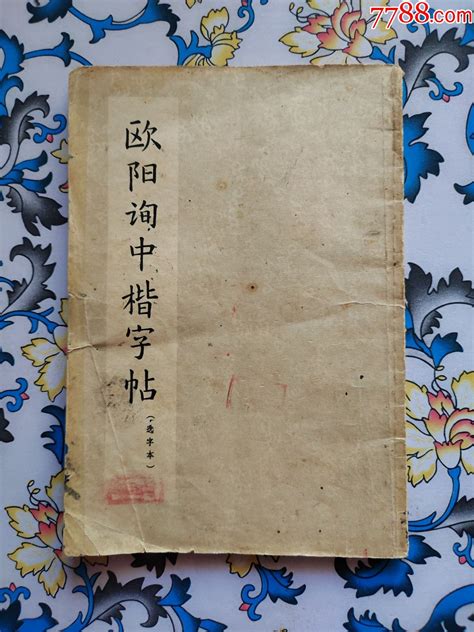 7788.com
欧阳询中楷字帖
(选字本)